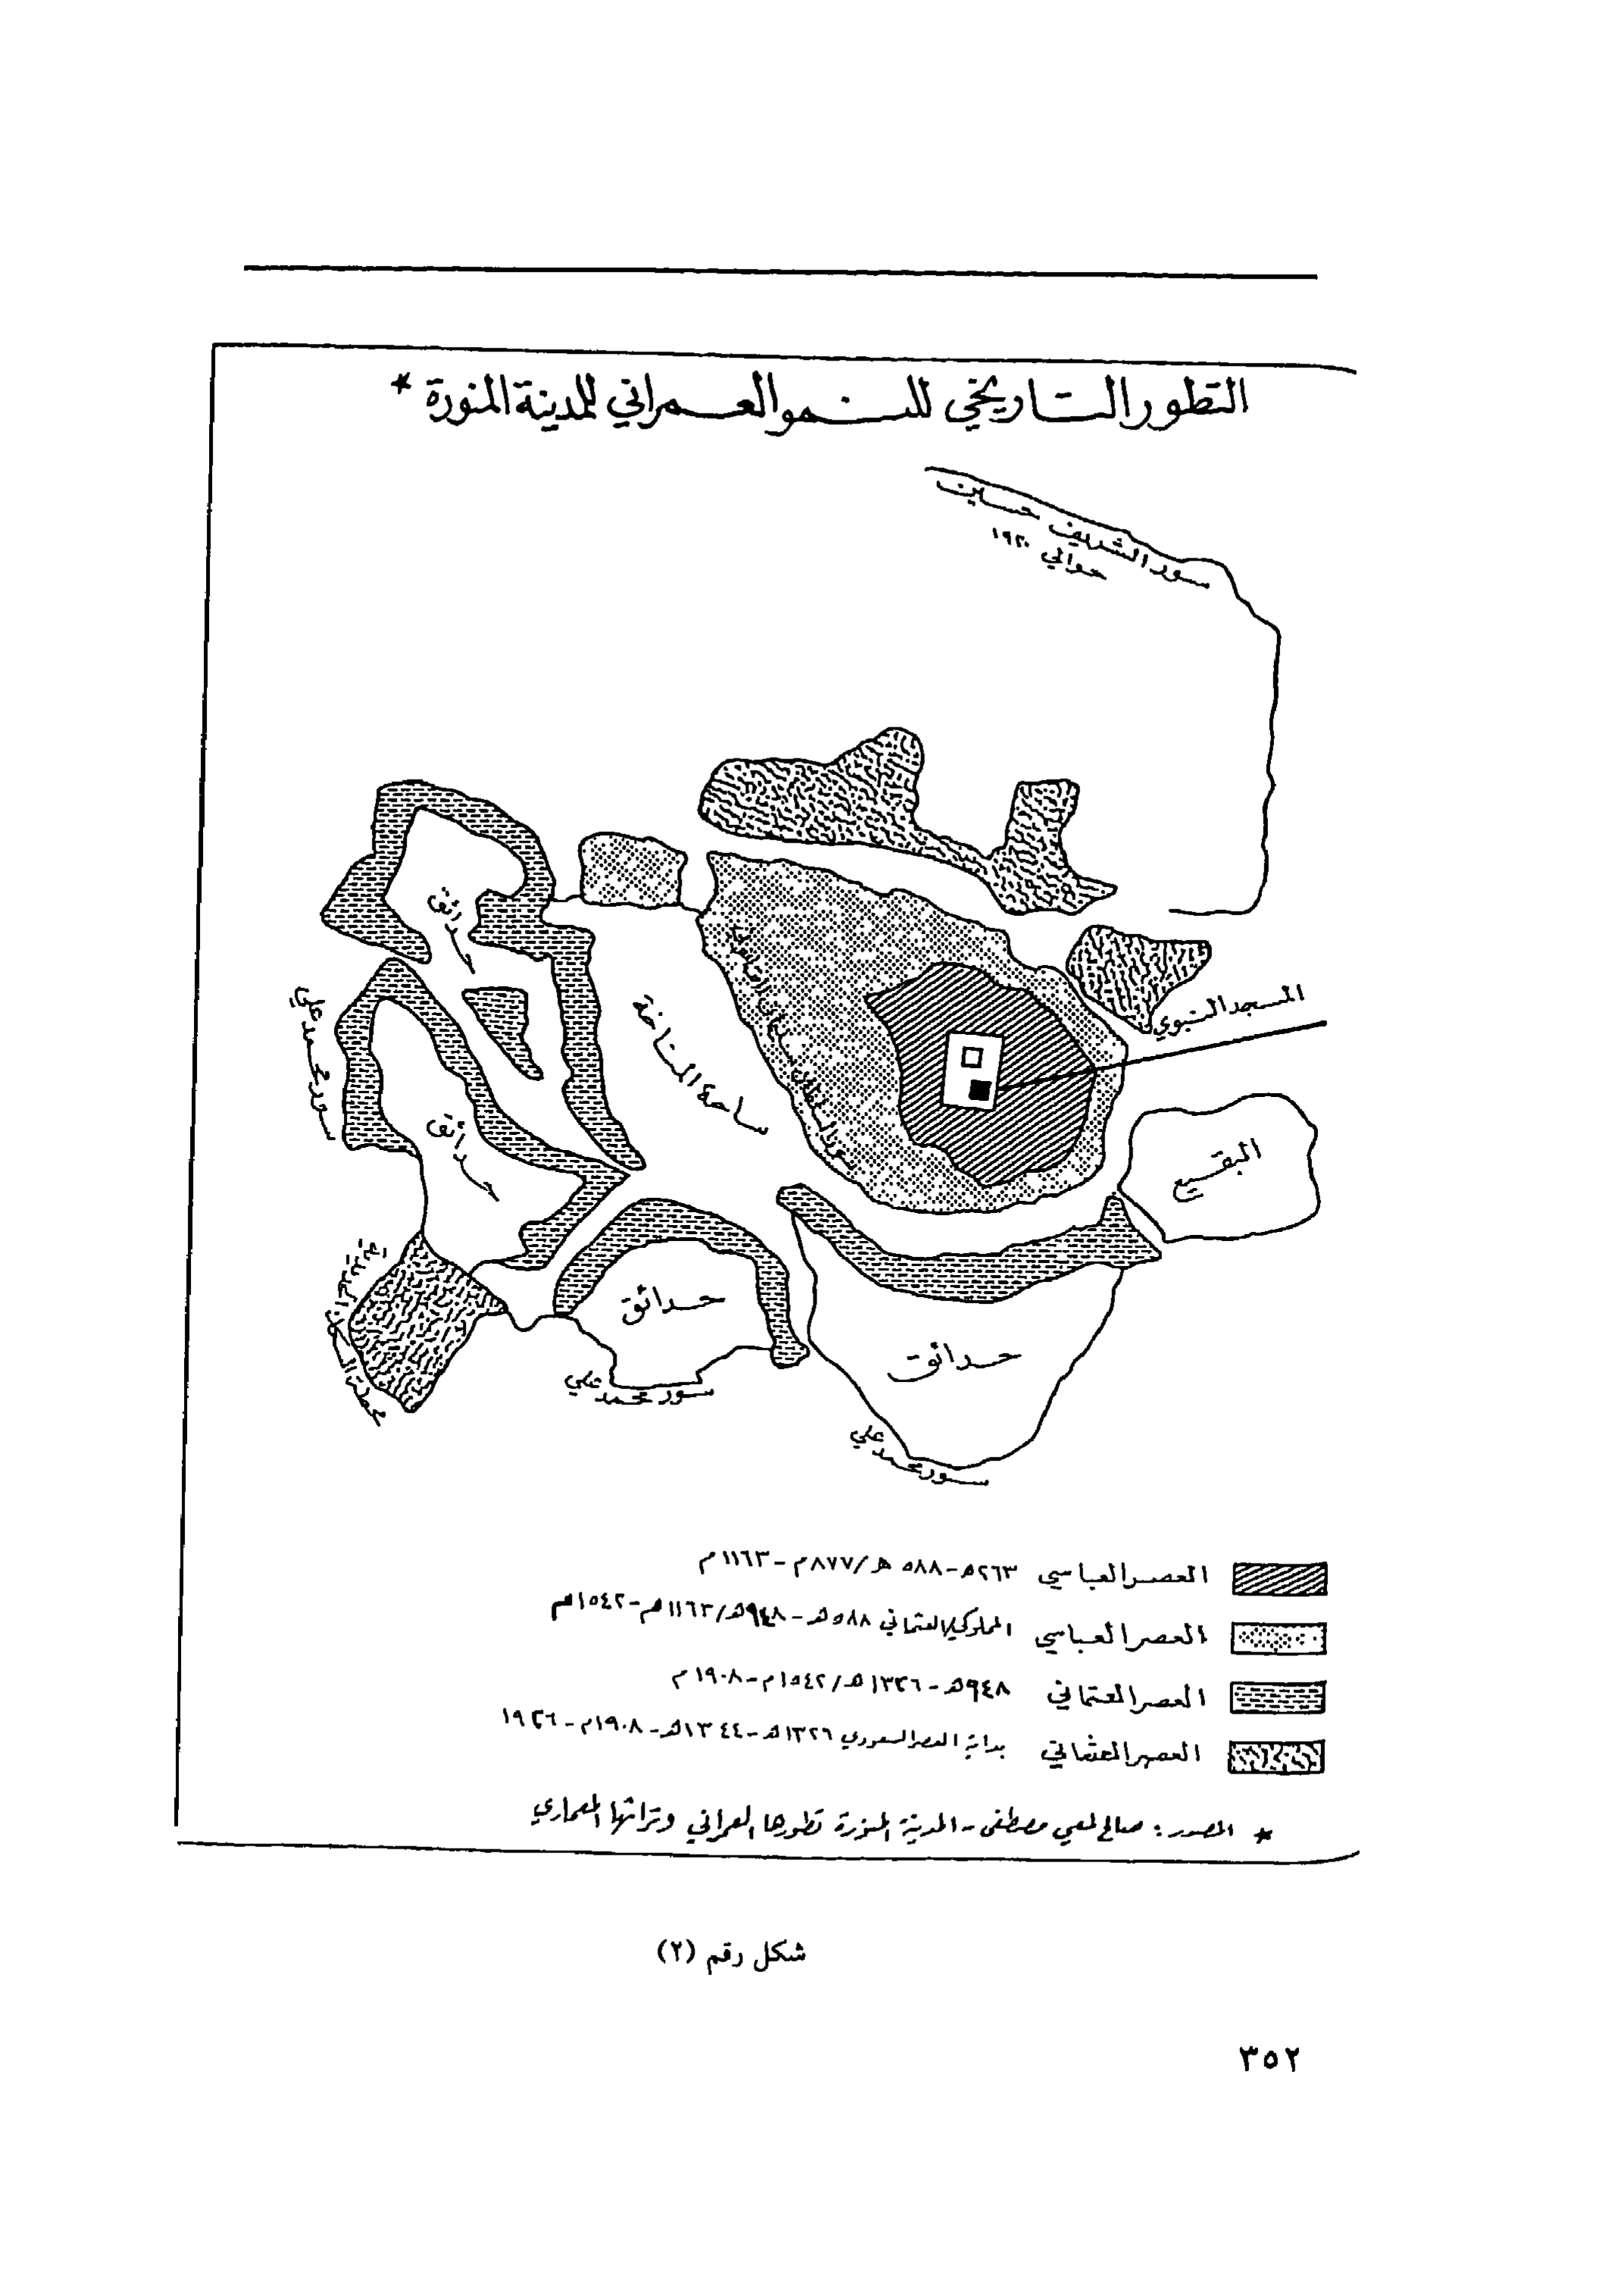 التطور التاريخي للنمو العمراني للمدينة المنورة *
سور الشريف حسين
حوالي ١٩٢٠
حدائق
المسجد النبوي
سور محمد علي
ساحة المناخة
سور السلطان سليمان
حدائق
البقيع
محطة السكة الحديدية
حدائق
حدائق
سور محمد علي
سور محمد علي
العصر العباسي ٢٦٣هـ - ٥٨٨ هـ/٨٧٧م - ١١٦٣م
العصر العباسي المملوكي العثماني ٥٨٨هـ - ٩٤٨هـ/١١٦٣م - ١٥٤٢م
العصر العثماني ٩٤٨هـ - ١٣٢٦هـ/١٥٤٢م - ١٩٠٨م
العصر العثماني بداية العصر السعودي ١٣٢٦هـ - ١٣٤٤هـ - ١٩٠٨م - ١٩٢٦
* المصدر: صالح لمعي مصطفى - المدينة المنورة تطورها العمراني وتراثها المعماري
شكل رقم (٢)
٣٥٢